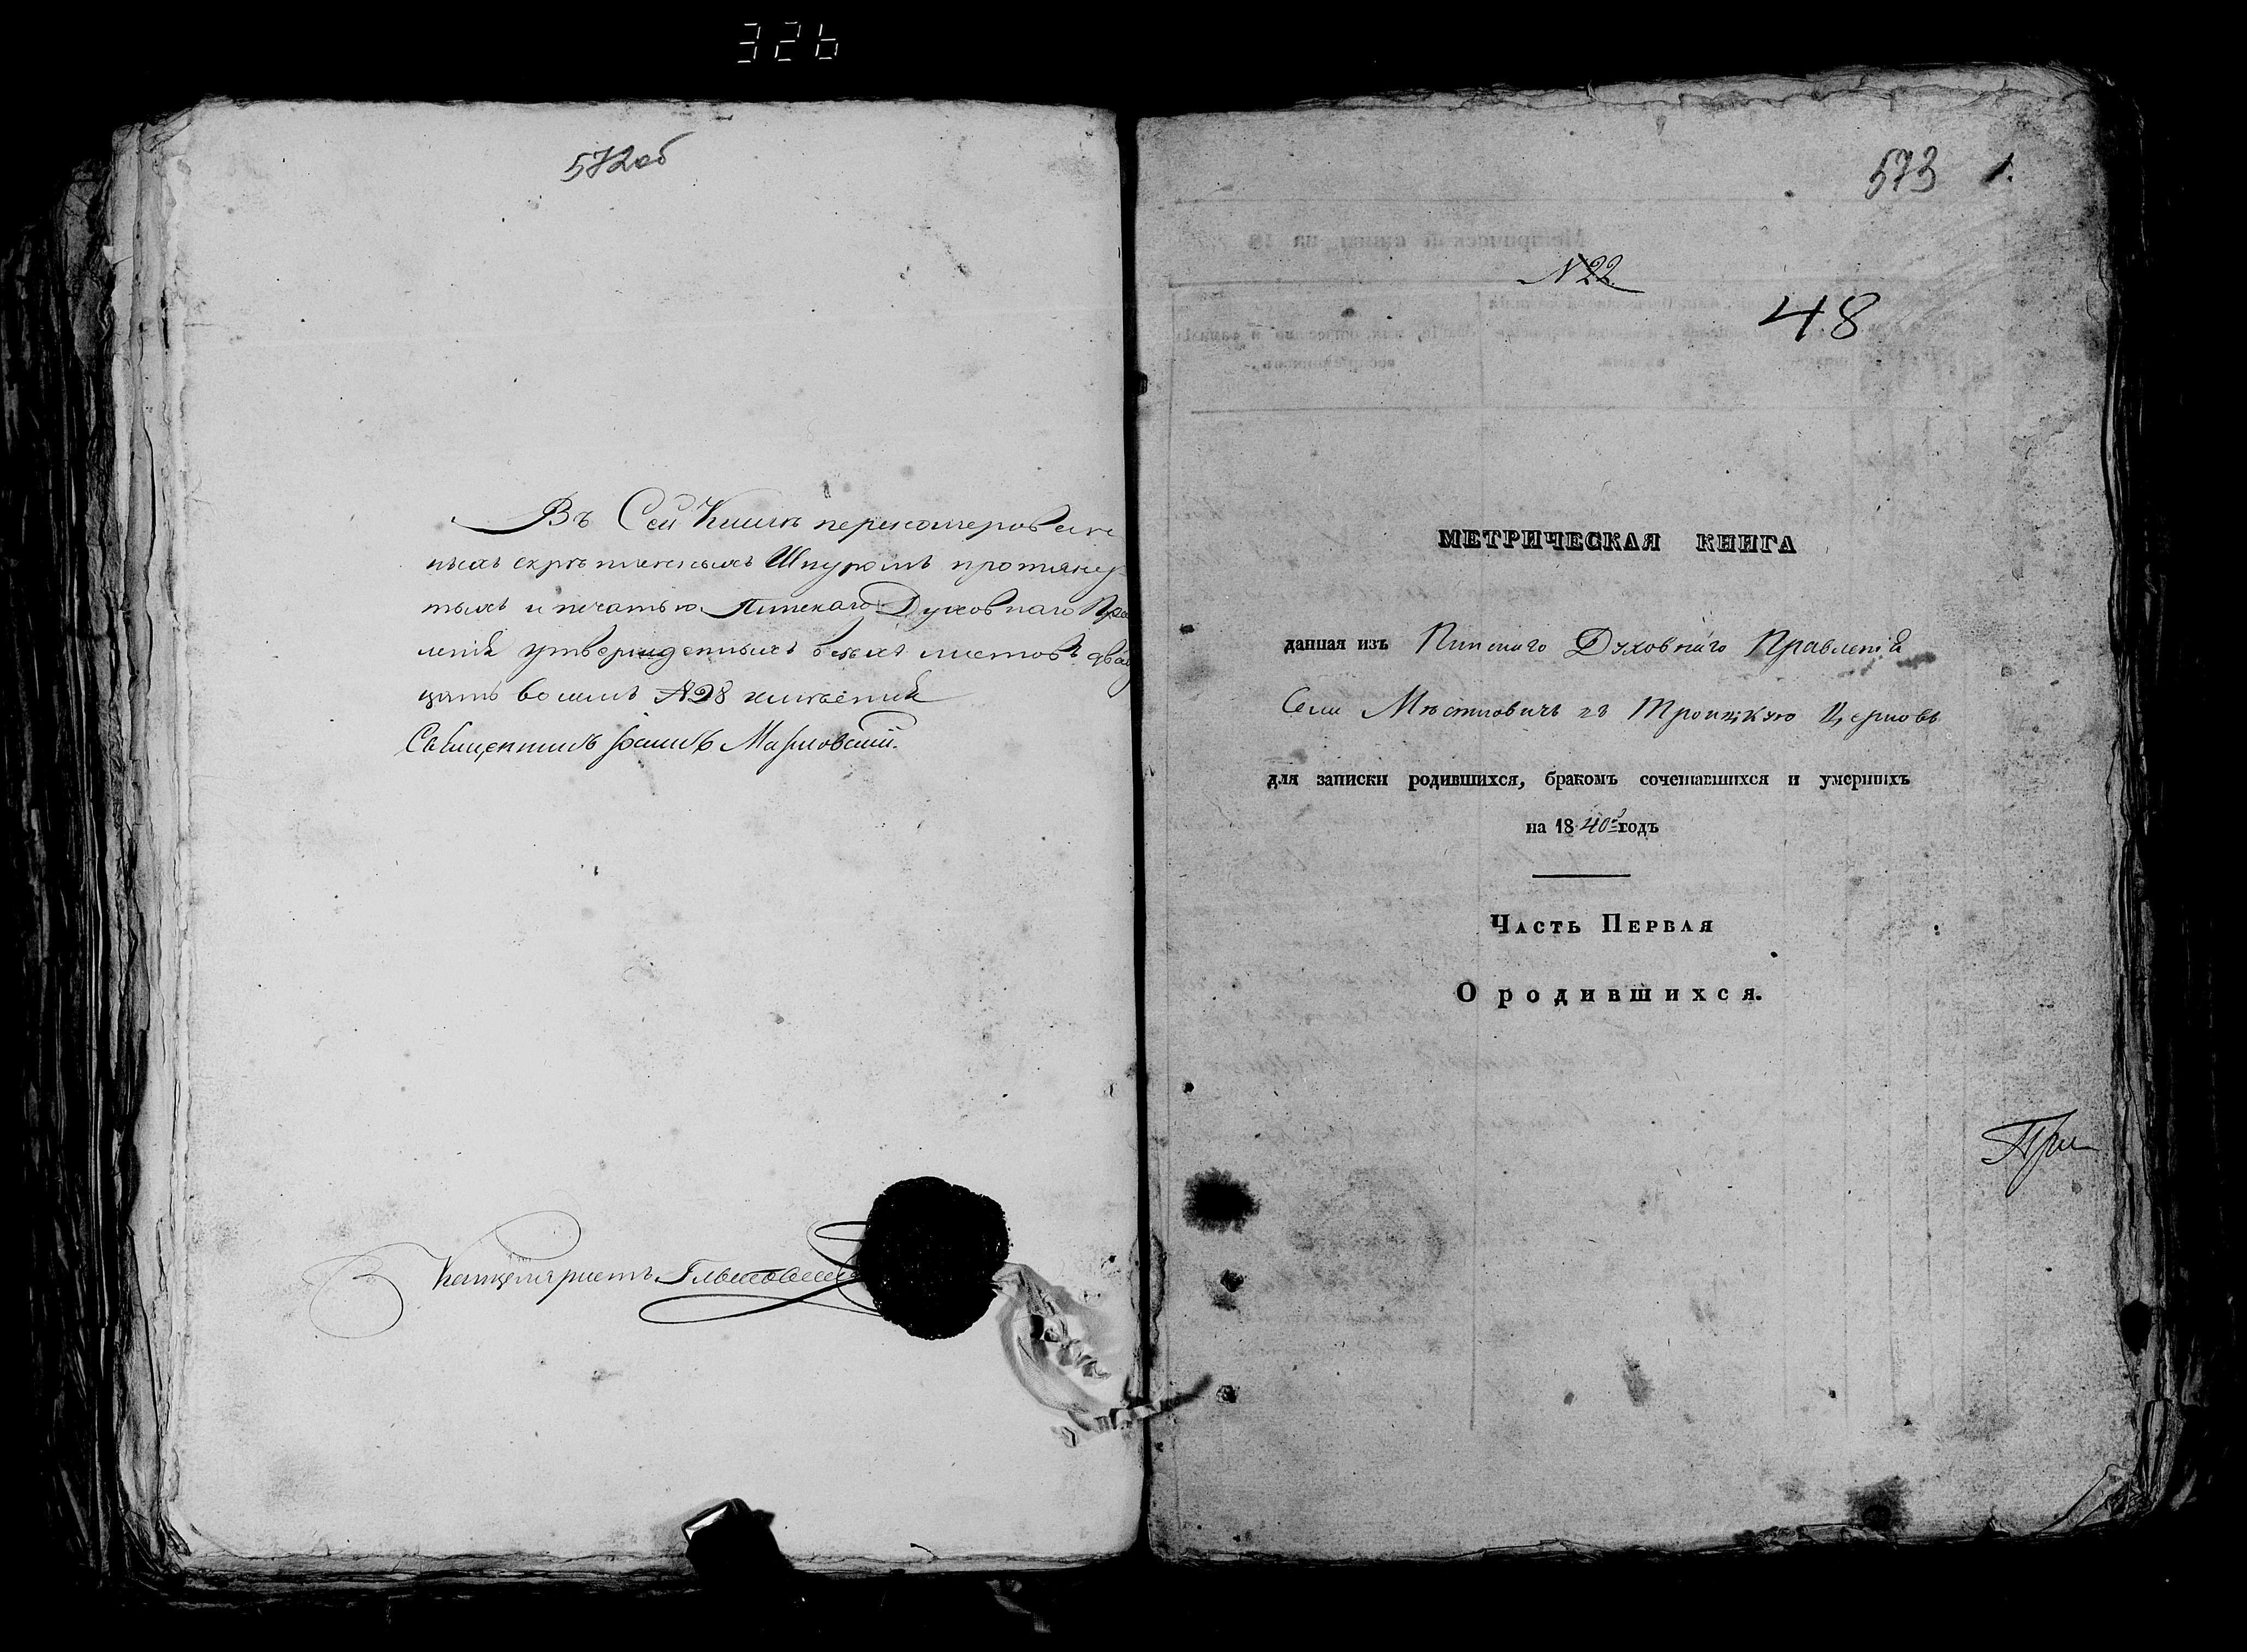 326
572об
Въ Сей Книгѣ перенумерован
ныхъ скрѣпленныхъ Шнуромъ протяну
тыхъ и печатью Пинскаго Духовнаго Пра
ленія утвержденныхъ бѣлыхъ листовъ два
цать восемь №28 имѣется
Священникъ Іоаннъ
Канцеляристъ
573 1.
N 22
48
МЕТРИЧЕСКАЯ КНИГА
данная изъ Пинскаго Духовнаго Правленія
Села Мѣстковичъ въ Троицкую Церковь
для записки родившихся, бракомъ сочетавшихся и умершихъ
на 1840й годъ
Часть Первая
О родившихся.
При